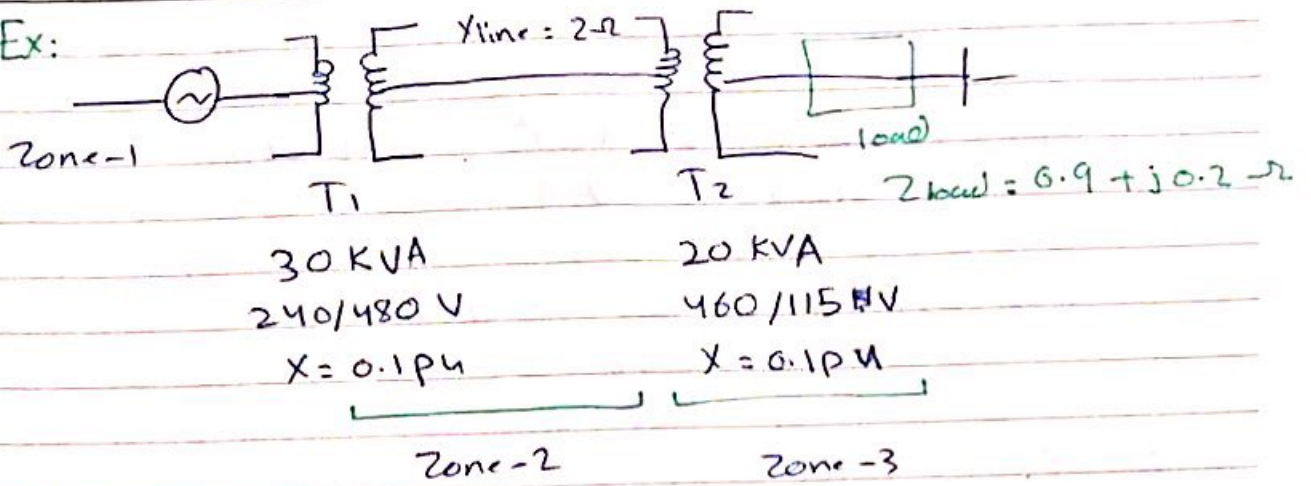 Ex:
Xline = 2Ω
Zone-1
load
T1
T2
Zload = 0.9 + j0.2 Ω
30 KVA
20 KVA
240/480 V
460/115 V
X = 0.1pu
X = 0.1pu
Zone-2
Zone-3